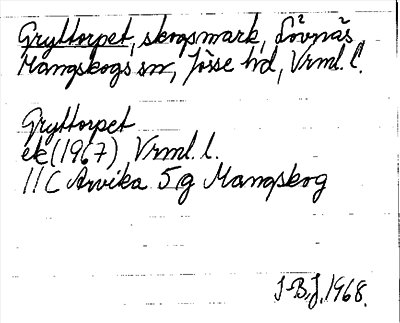 Gryttorpet, skogsmark, Lövnäs,
Mangskogs sn, Jösse hd, Vrml. l.
Gryttorpet
ek (1967) Vrml. l.
11C Arvika 5g Mangskog
J-B.J. 1968.